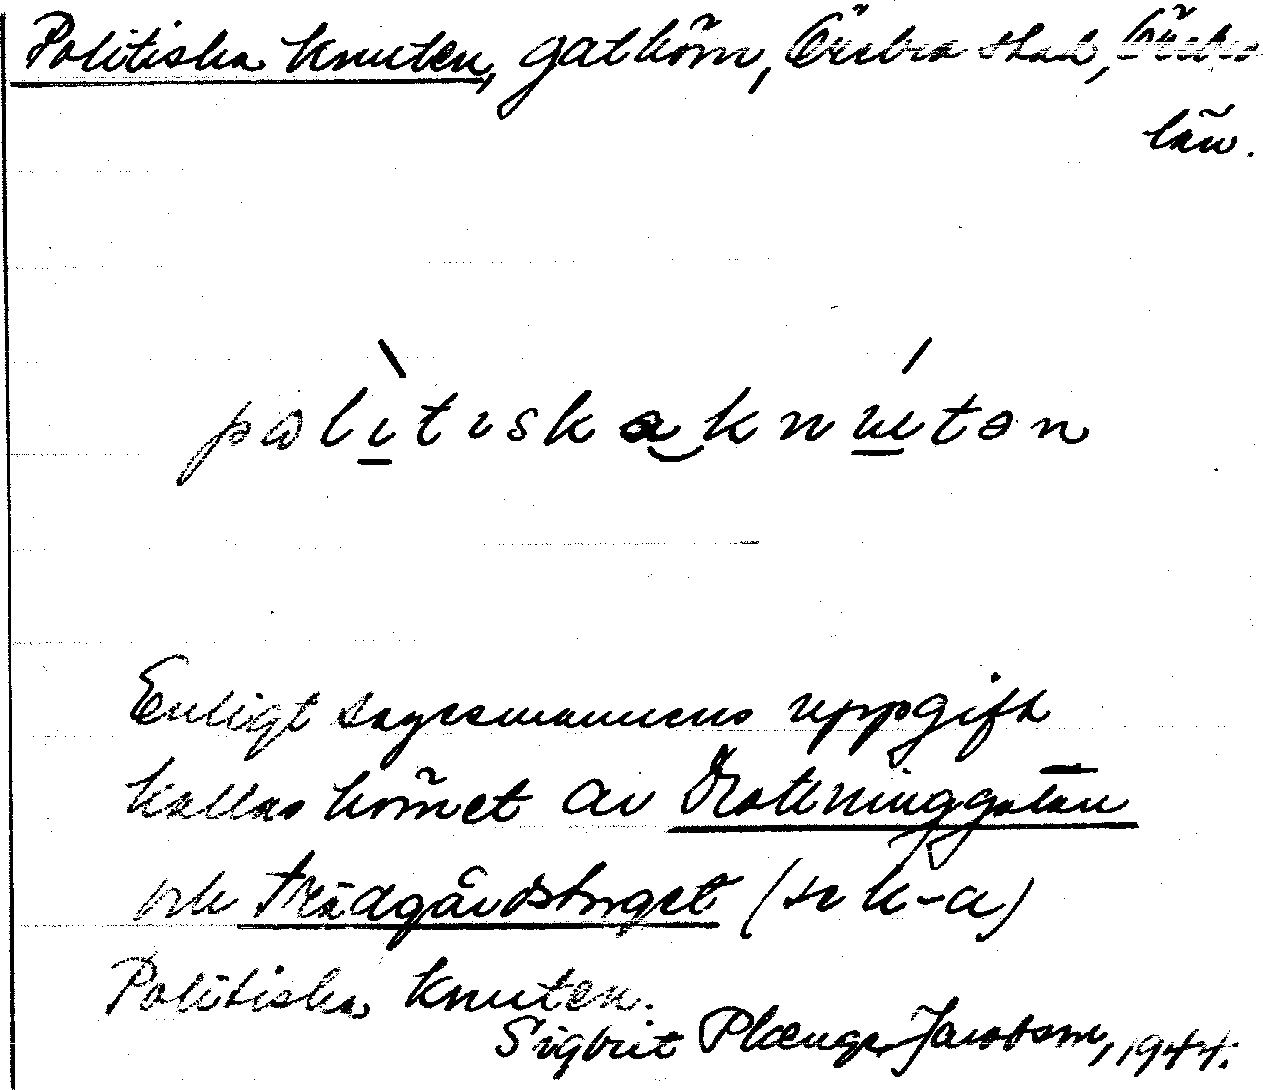 Politiska Knuten, gathörn, Örebro stad, Örebro
län.
polìtiska knútən
Enligt sagesmannens uppgift
kallas hörnet av Drottninggatan
och Trädgårdstorget (se k-a)
Politiska Knuten.
Sigbrit Plænge Jacobson, 1944.